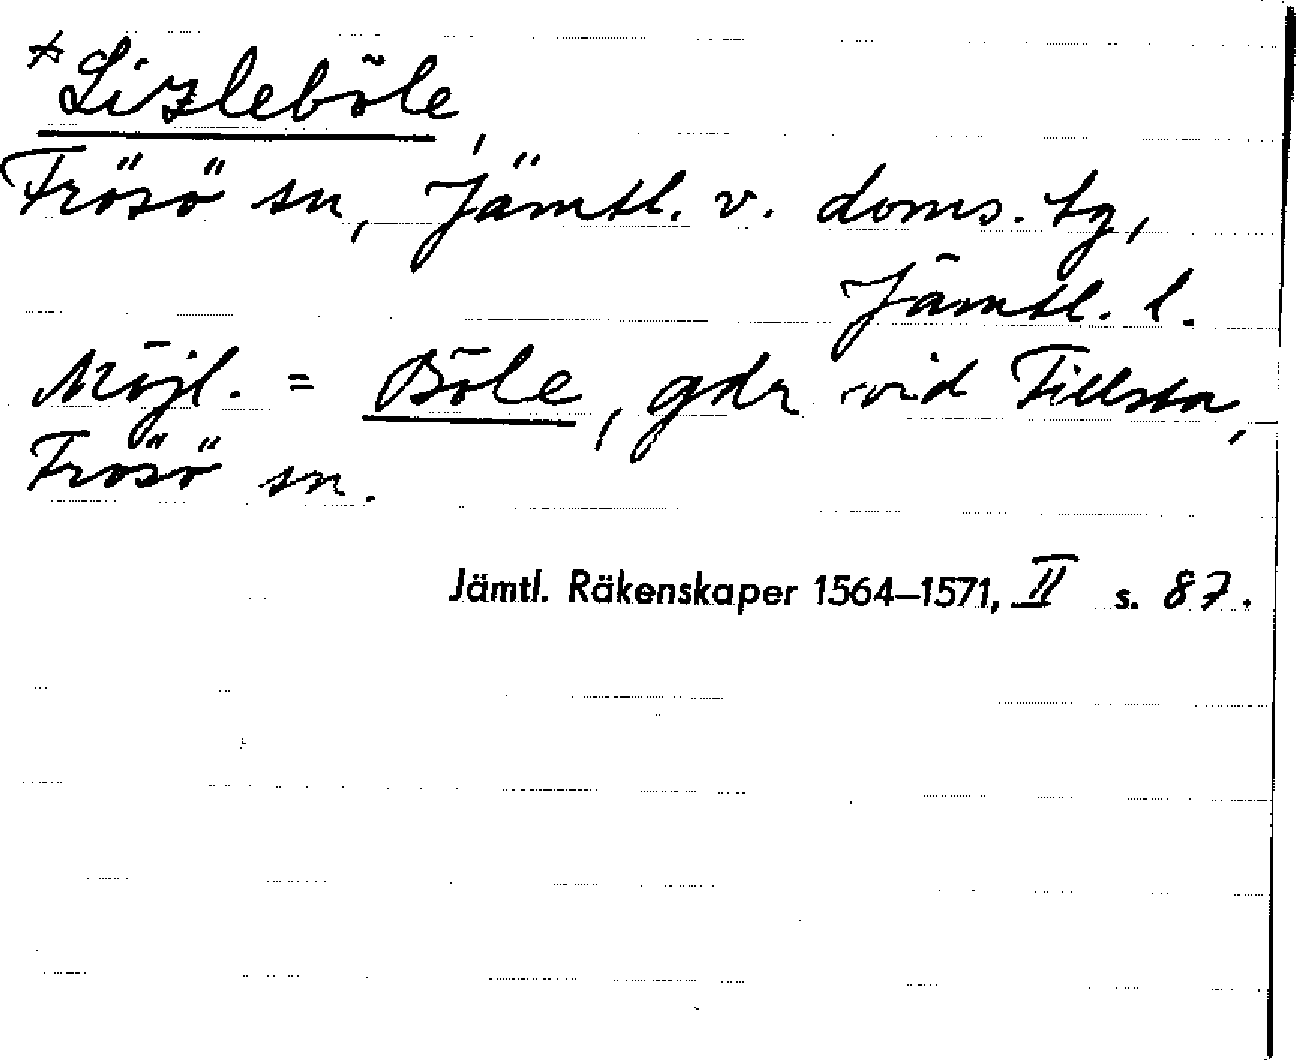 *Lizleböle,
Frösö sn, Jämtl. v. doms. tg,
Jämtl. l.
Möjl. = Böle, gdr vid Tillsta,
Frösö sn.
Jämtl. Räkenskaper 1564–1571, II s. 87.